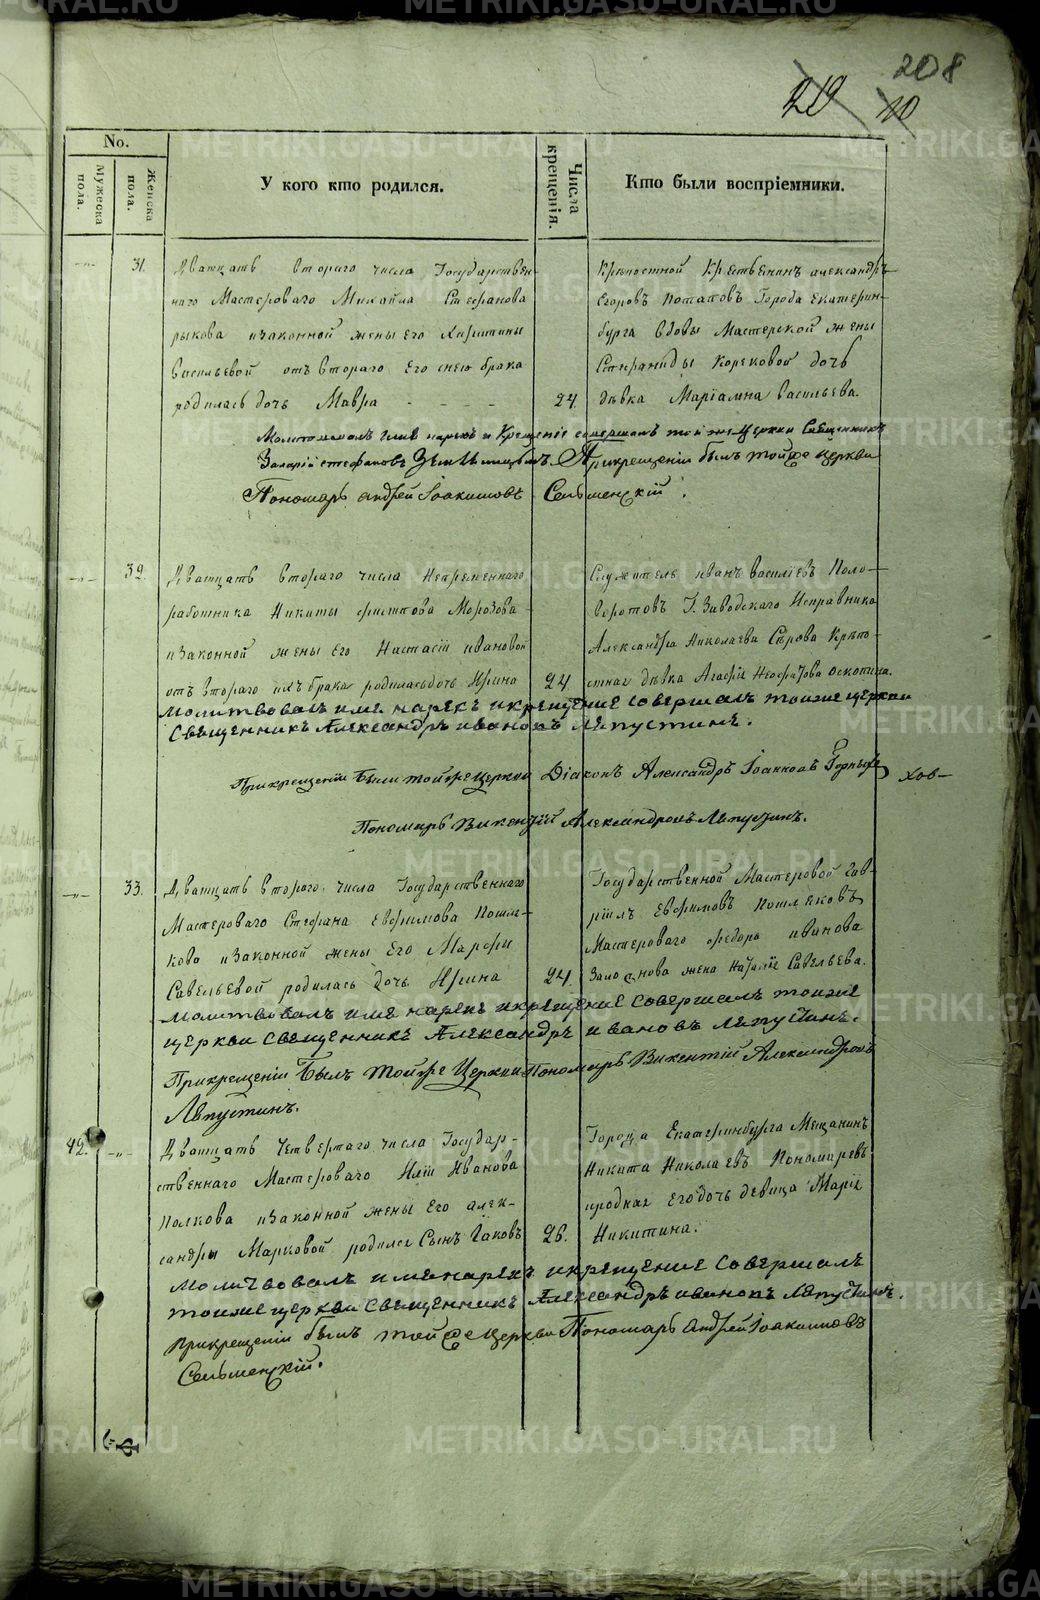 208
219
10
No.
Мужеска пола.
Женска пола.
У кого кто родился.
Числа крещенія.
Кто были воспріемники.
31.
Дватцать втораго числа Государствен-
наго Мастероваго Михайла Стефанова
рыкова изаконной жены его Христины
Васильевой отъ втораго Его снею брака
родилась дочь Мавра
24.
Крѣпостной Крѣстьенинъ александръ
Егоровъ Потаповъ Города Екатерин-
бурга вдовы Мастерской жены
Стираниды Корековой дочь
дѣвка Маріамна Васильева.
Молитвовалъ имя нарекъ и Крещеніе совершалъ той же Церкви Священникъ
Захарій стефановъ
Прикрещеніи былъ тойже церкви
Пономарь андрей Іоакимовъ Сельменскій.
32.
Дватцать втораго числа Непременнаго
работника Никиты филіппова Морозова
изаконной жены его Настасіи ивановой
отъ втораго ихъ брака родилась дочь Ирина
24.
Служитель иванъ василіевъ Поло-
воротовъ Г. Заводскаго Исправника
Александра Николаева Сѣрова Крѣпо-
стная дѣвка Агафіи Неофитова оскопина.
молитвовалъ име нарекъ икрещение совершалъ тоиже церкви
священникъ Александръ ивановъ Ляпустинъ.
Прикрещеніи были тойже церкви Діаконъ Александръ Іоанновъ Горных
хов-
Пономарь Викентій Александровъ Ляпустинъ.
33.
Дватцать втораго числа Государственнаго
Мастероваго Стефана Евфимова Пошля-
кова изаконной жены Его Марфы
Савельевой родилась дочь Ирина
24.
Государственной Мастеровой Гав-
ріилъ Евфимовъ Пошляковъ
Мастероваго федора иванова
жена Наталіе Савельева.
молитвовалъ име нарекъ икрещение совершалъ тоиже
церкви священникъ Александръ ивановъ Ляпустинъ.
Прикрещеніи былъ тойже Церкви Пономарь Викентій Александровъ
Ляпустинъ.
42.
Дватцать Четвертаго числа Государ-
ственнаго Мастероваго Иліи Иванова
Полкова изаконной жены Его алек-
сандры Марковой родился Сынъ Іаковъ
26.
Города Екатеринбурга Мещанинъ
Никита Николаевъ Пономаревъ
иродная Его дочь девица Маріе
Никитина.
молитвовалъ име нарекъ икрещение совершалъ
тоиже церкви священникъ Александръ ивановъ Ляпустинъ.
Прикрещеніи былъ тойже Церкви Пономарь андрей Іоакимовъ
Сельменскій.
METRIKI.GASO-URAL.RU